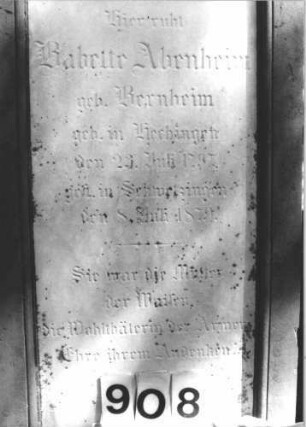 Hier ruht
Babette Abenheim
geb. Bernheim
geb. in Hechingen
den Juli
gest. in Schwetzingen
den 8. Juli
Sie war die Mutter
der Waisen,
die Wohlthäterin der Armen
Ehre ihrem Andenken
908